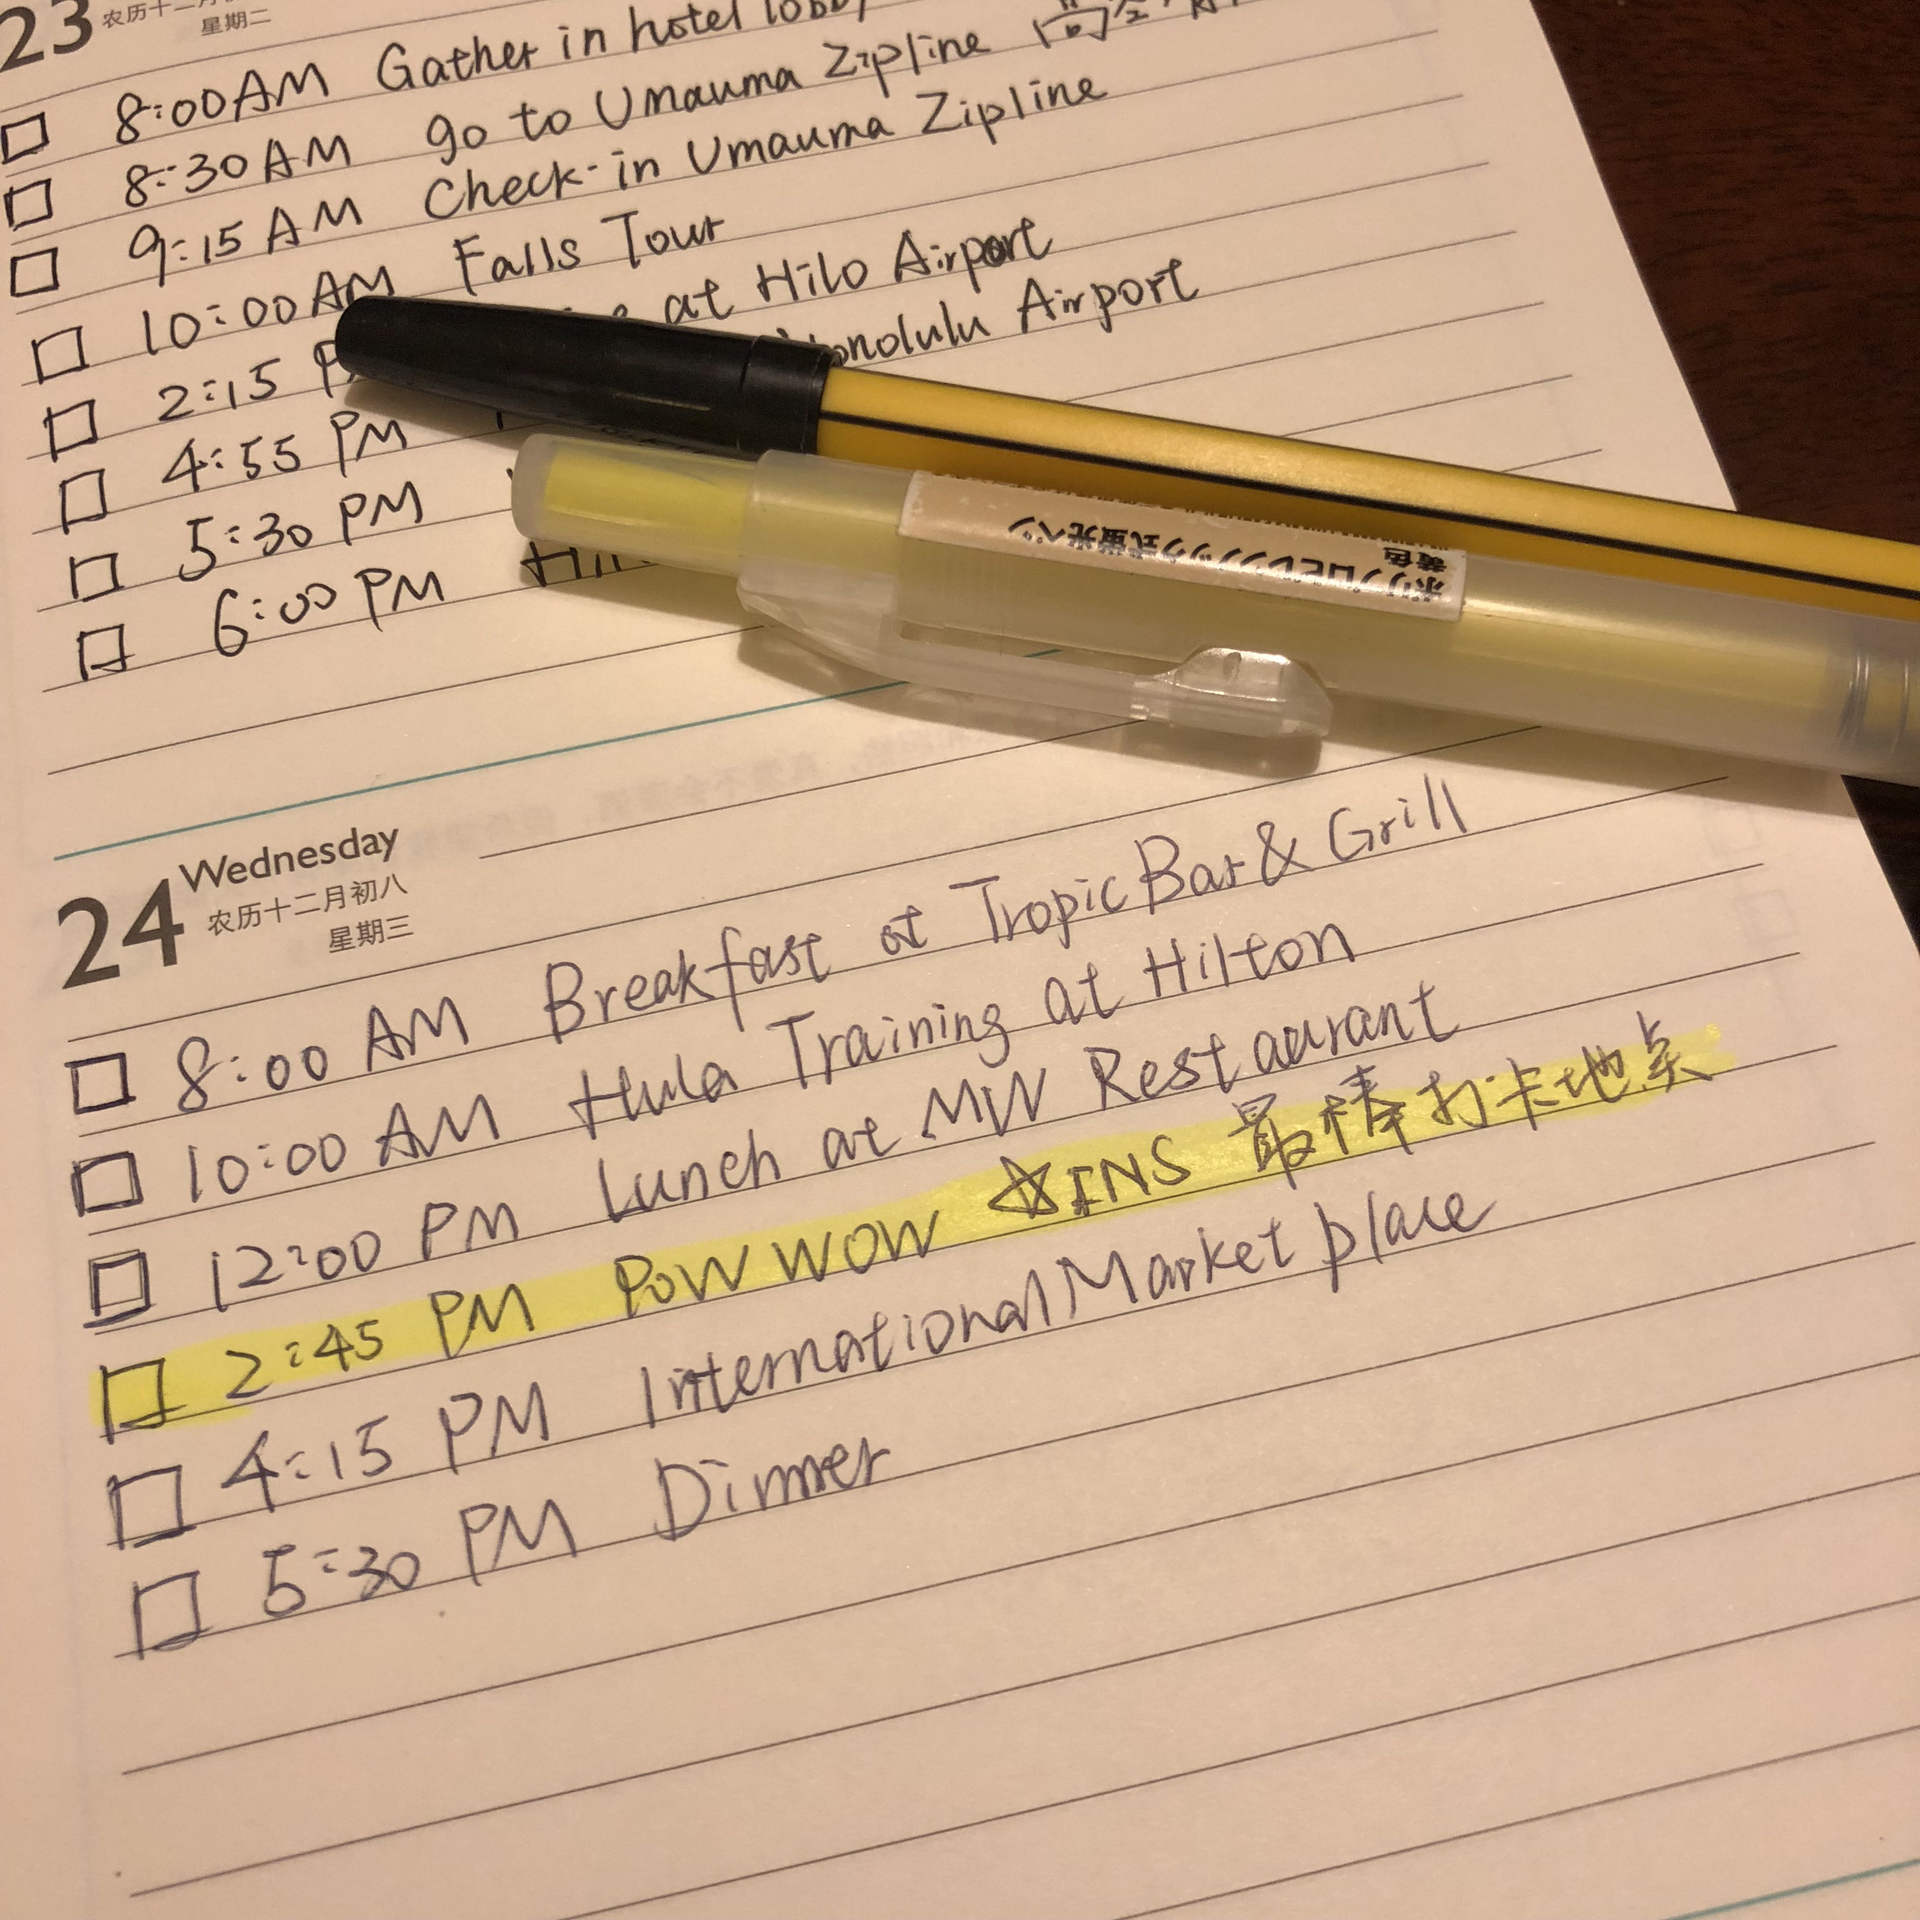 23
星期二
8:00AM Gather in hotel lobby
8:30AM go to Umauma Zipline
9:15AM Check-in Umauma Zipline
10:00AM Falls Tour
2:15 at Hilo Airport
4:55 PM Honolulu Airport
5:30 PM
6:00 PM
ポリプロピレンノック式蛍光ペン
黄色
24 Wednesday
农历十二月初八
星期三
8:00 AM Breakfast at Tropic Bar & Grill
10:00 AM Hula Training at Hilton
12:00 PM Lunch at MW Restaurant
2:45 PM POW WOW ☆INS 最棒打卡地点
4:15 PM International Market place
5:30 PM Dinner